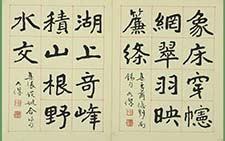 象床穿幰
網翠羽映
簾條
湖上奇峰
積山根野
水交